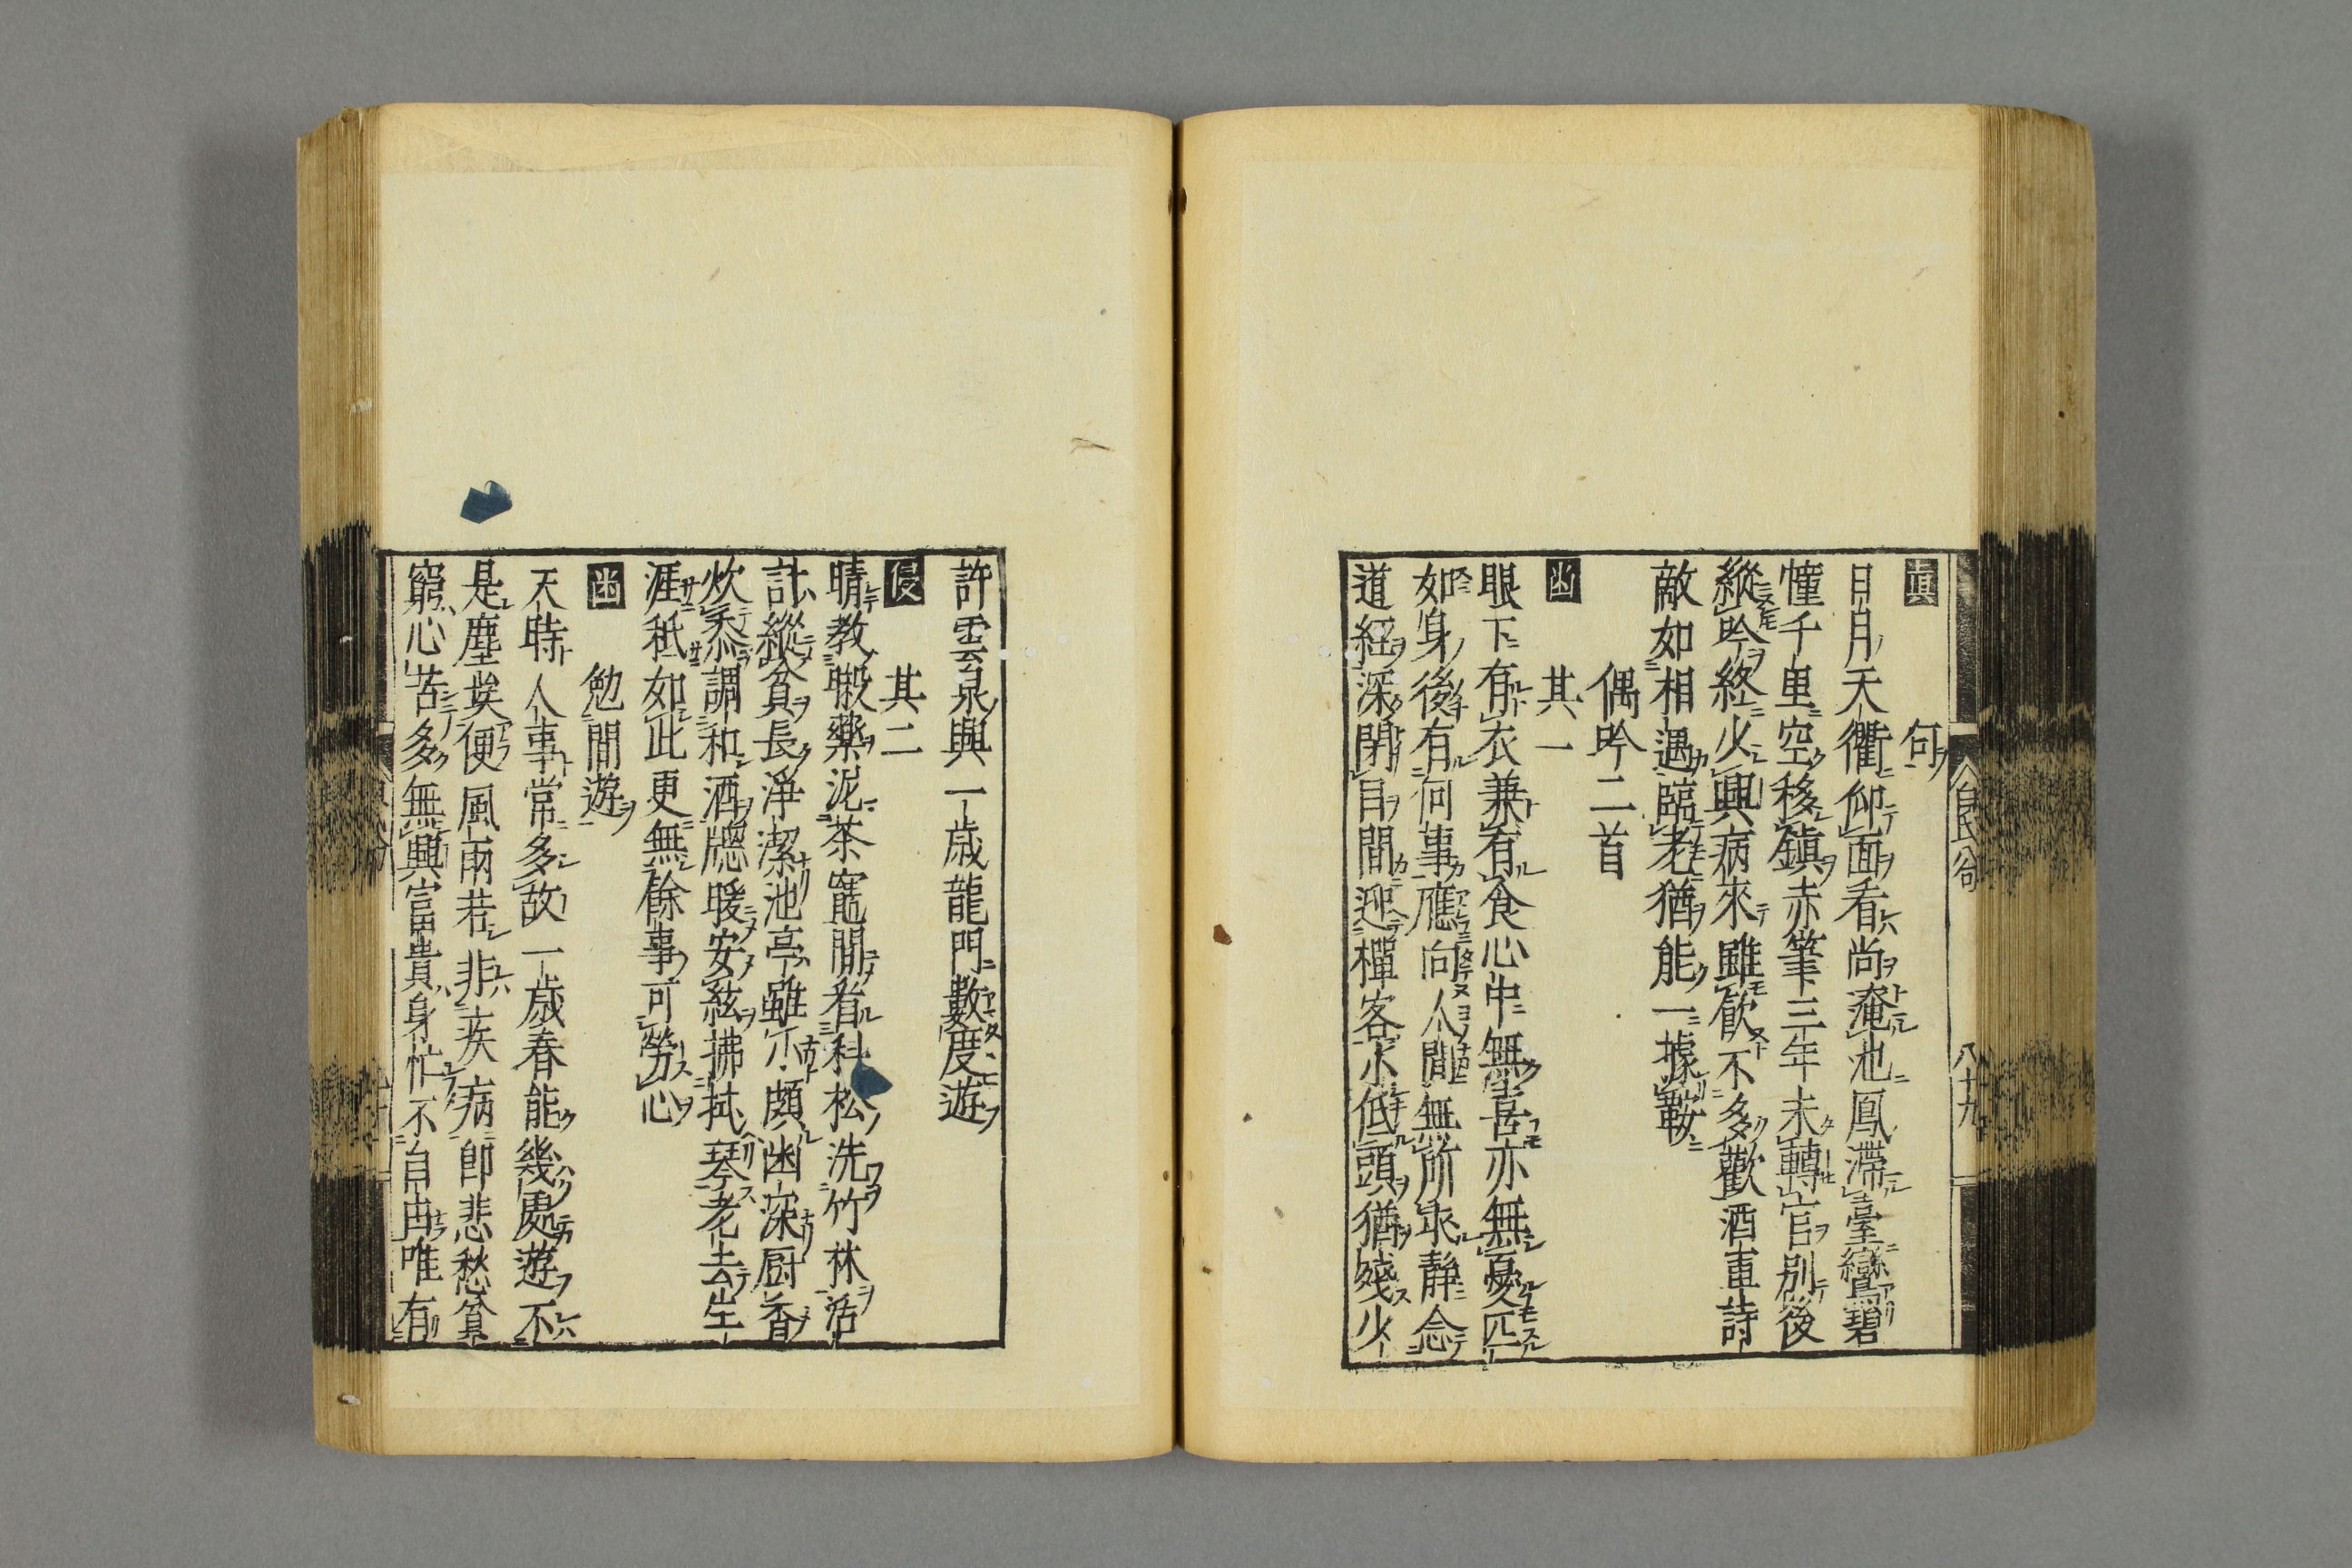 眞
何
日月天衢仰面看尚淹池鳳滯臺鸞碧
憧千里空移鎮赤筆三年未轉官別後
縱吟終少興病來雖飲不多歡酒軍詩
敵如相遇臨老猶能一據鞍
偶吟二首
幽
其一
眼下有衣兼有食心中無喜亦無憂匹
如身後有何事應向人間無所求静念
道經深閉目閒迎禪客小低頭猶殘少
許雲泉興一歳龍門數度遊
侵
其二
晴教曬藥泥茶竈閒看科松洗竹林活
計縱貧長淨潔池亭雖小頗幽深厨香
炊黍調和酒牕暖安絃拂拭琴老去生
涯秖如此更無餘事可勞心
幽
勉閒遊
天時人事常多故一歳春能幾處遊不
是塵埃便風雨若非疾病即悲愁貧
窮心苦多無興富貴身忙不自由唯有
八十九